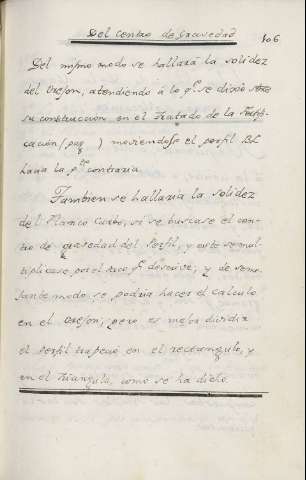 Del centro de Gravedad 106
Del mismo modo se hallará la solidez
del Orejon, atendiendo á lo q.e se dixo sobre
su construccion en el Tratado de la Fortifi-
cación (pag ) moviendose el perfil BL
hacia la p.te contraria.
Tambien se hallaria la solidez
del Flanco Curbo, si se buscase el cen-
tro de gravedad del Perfil, y este se mul-
tiplicase por el arco q.e describe, y de seme-
jante modo se podria hacer el calculo
en el Orejon; pero es mejor dividir
el perfil trapecio en el rectangulo, y
en el Triangulo, como se ha dicho.